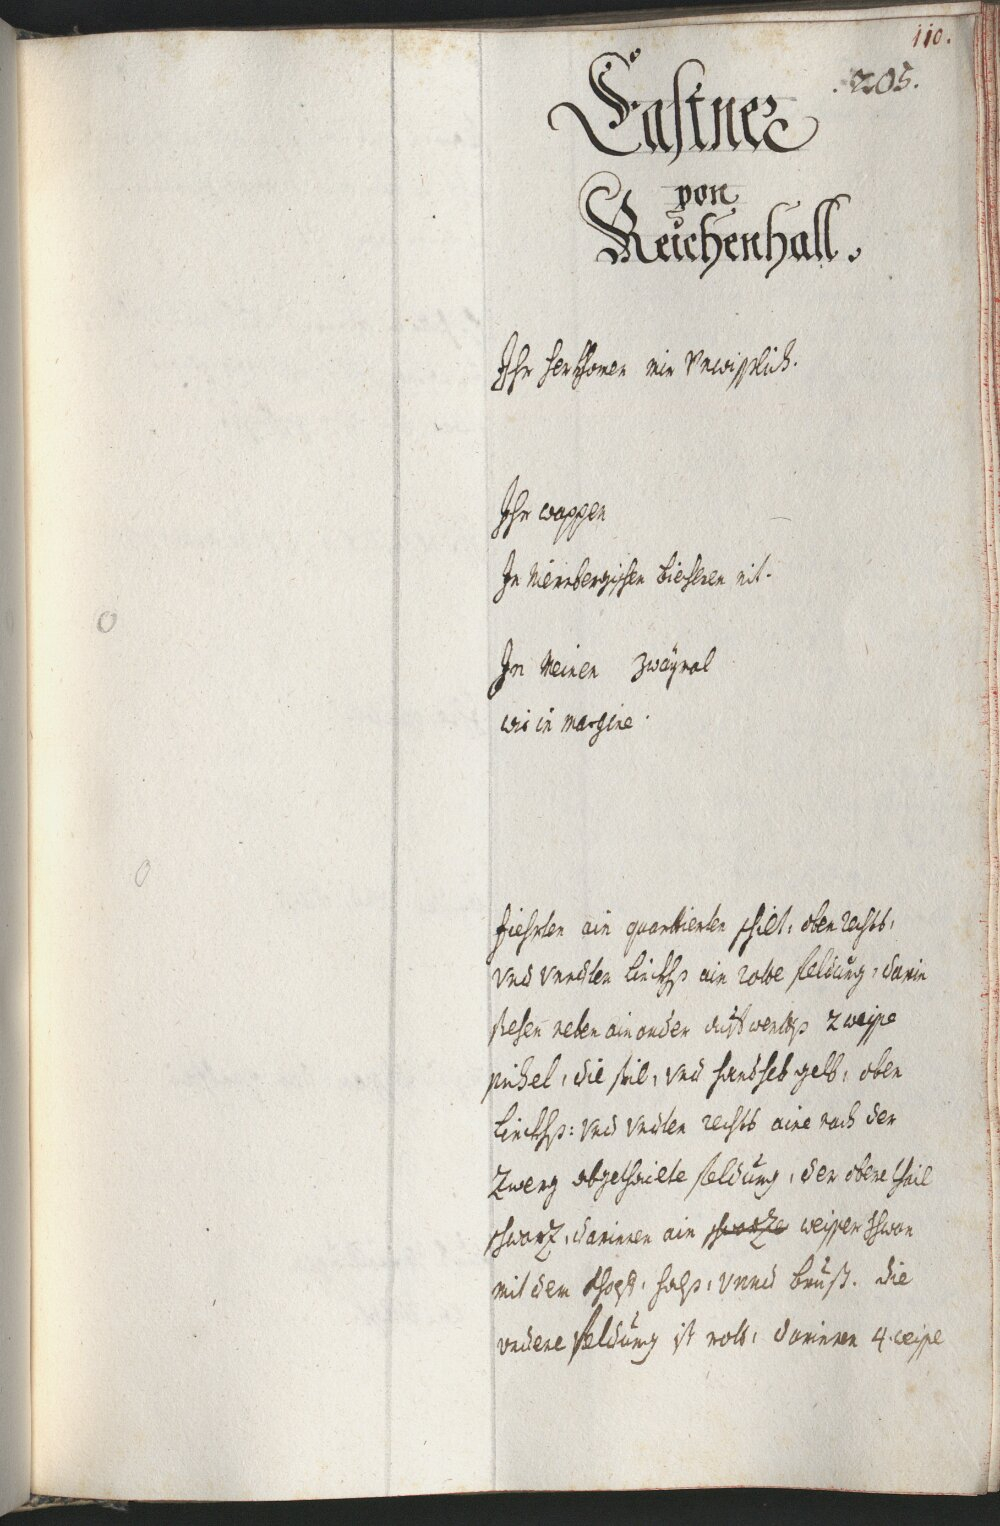 110.
205.
Castner
von
Reichenhall.
Ihr herkhomen mir Vnwisslich.
Ihr wappen
In Niernbergischen Biechern nit.
In Meinen zwäymal
wie in margine.
fiehrten ain quarttierten schilt, oben rechts,
vnd vnndten linckhs ain rotte feldung, darin
stehen neben ainander auffwerths 2 weisse
pickel, die stil, vnd handheb gelb, oben
linckhs: vnd vndten rechts aine nach der
Zwerg abgethailte feldung, der obere thail
schwarz, darinnen ain schwarze weisser schwan
mit dem khopf, hals, vnnd brust. die
vndere feldung ist roth, darinnen 4. weisse